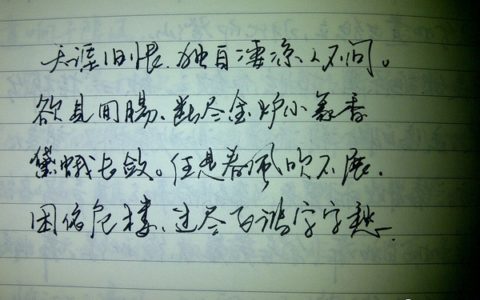 天涯旧恨、独自凄凉人不问。
欲见回肠、断尽金炉小篆香
黛蛾长敛。任是春风吹不展、
困倚危楼、过尽飞鸿字字愁